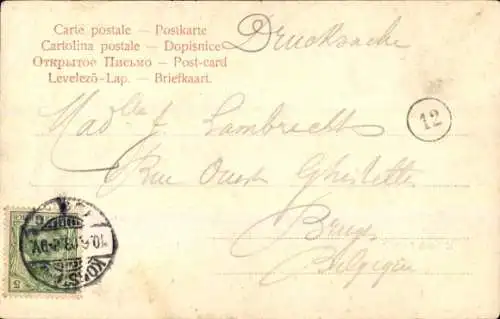 Carte postale — Postkarte
Cartolina postale — Dopisnice
Открытое Письмо — Post-card
Levelező-Lap. — Briefkaart.
Drucksache
Madlle J. Lambrecht
Rue Ouest Ghistelles
Bruges
Belgien
12
10.6.03
5